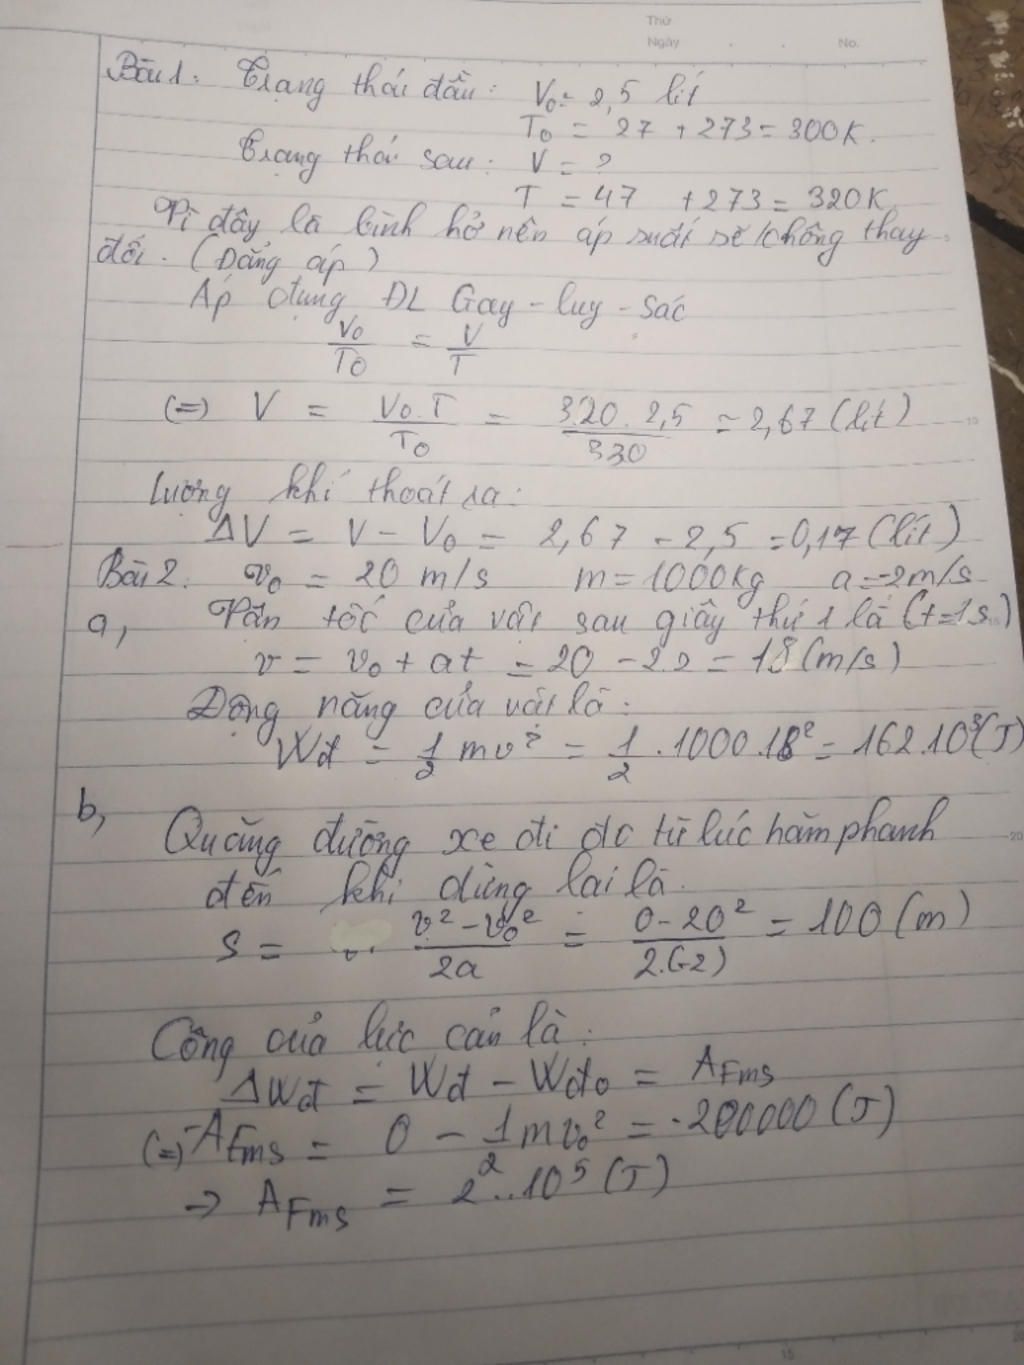 Thứ
Ngày . . No.
Bài 1. Trạng thái đầu: V₀ = 2,5 lít
T₀ = 27 + 273 = 300K.
Trạng thái sau: V = ?
T = 47 + 273 = 320K
Vì đây là bình hở nên áp suất sẽ không thay
đổi. (Đẳng áp)
Áp dụng ĐL Gay-luy-sác
V₀/T₀ = V/T
(=) V = V₀.T/T₀ = 320.2,5/330 = 2,67 (lít)
Lượng khí thoát ra:
ΔV = V - V₀ = 2,67 - 2,5 = 0,17 (lít)
Bài 2. v₀ = 20 m/s m = 1000kg a = -2m/s
a, Vận tốc của vật sau giây thứ 1 là (t=1s)
v = v₀ + at = 20 - 2.2 = 18 (m/s)
Động năng của vật là:
Wđ = 1/2 mv² = 1/2 .1000.18² = 162.10³(J)
b,
Quãng đường xe đi đc từ lúc hãm phanh
đến khi dừng lại là
s = v² - v₀²/2a = 0 - 20²/2.(-2) = 100 (m)
Công của lực cản là:
ΔWđ = Wđ - Wđ₀ = AFms
(=) -AFms = 0 - 1/2 mv₀² = -200000 (J)
→ AFms = 2..10⁵ (J)
10
15
20
15